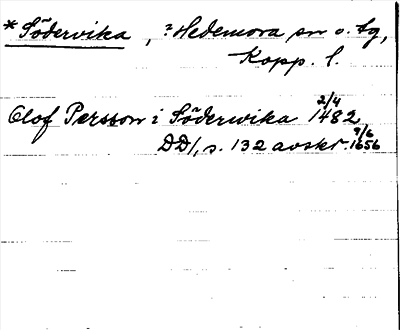 *Södervika, ?Hedemora sn o. tg,
Kopp. l.
Olof Persson i Söderwika 2/4 1482
DD/, s. 132 avskr. 9/6 1656